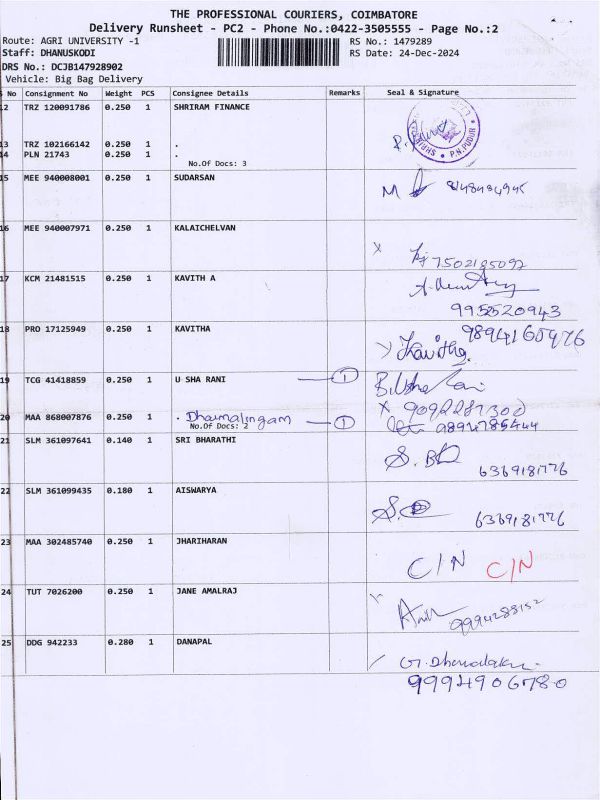 THE PROFESSIONAL COURIERS, COIMBATORE
Delivery Runsheet - PC2 - Phone No.:0422-3505555 - Page No.:2
Route: AGRI UNIVERSITY -1 RS No.: 1479289
Staff: DHANUSKODI RS Date: 24-Dec-2024
DRS No.: DCJB147928902
Vehicle: Big Bag Delivery
No Consignment No Weight PCS Consignee Details Remarks Seal & Signature
12 TRZ 120091786 0.250 1 SHRIRAM FINANCE
P.N.PUDUR
13 TRZ 102166142 0.250 1 .
14 PLN 21743 0.250 1 .
No.Of Docs: 3
15 MEE 940008001 0.250 1 SUDARSAN
16 MEE 940007971 0.250 1 KALAICHELVAN
7502185092
17 KCM 21481515 0.250 1 KAVITH A
9952520943
18 PRO 17125949 0.250 1 KAVITHA
Kavitha.
19 TCG 41418859 0.250 1 U SHA RANI 1 B.Usha Rani
20 MAA 868007876 0.250 1 . Dharmalingam 1
No.Of Docs: 2
21 SLM 361097641 0.140 1 SRI BHARATHI
22 SLM 361099435 0.180 1 AISWARYA
23 MAA 302485740 0.250 1 JHARIHARAN C/N C/N
24 TUT 7026200 0.250 1 JANE AMALRAJ
9994288152
25 DDG 942233 0.280 1 DANAPAL
9994906780